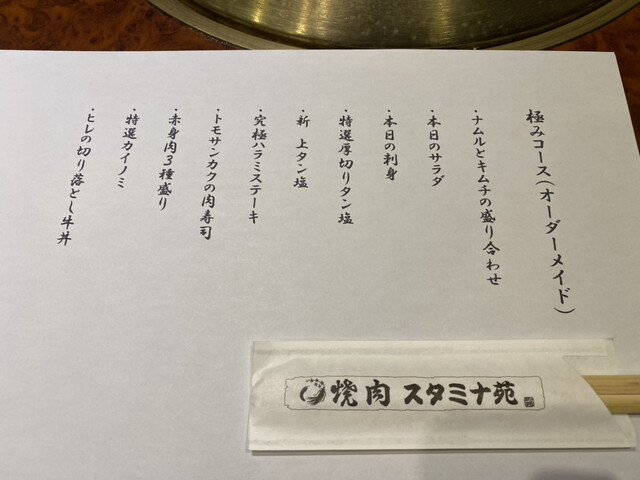 極みコース(オーダーメイド)
・ナムルとキムチの盛り合わせ
・本日のサラダ
・本日の刺身
・特選厚切りタン塩
・新 上タン塩
・究極ハラミステーキ
・トモサンカクの肉寿司
・赤身肉3種盛り
・特選カイノミ
・ヒレの切り落とし牛丼
焼肉 スタミナ苑